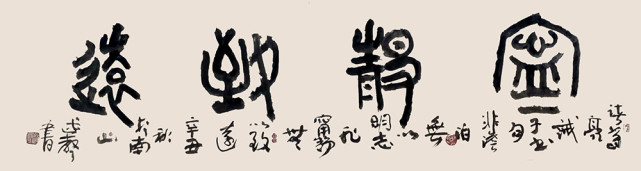 寧靜致遠
諸葛亮誡子書句非澹泊無以明志非寧靜無以致遠辛丑秋於南山書